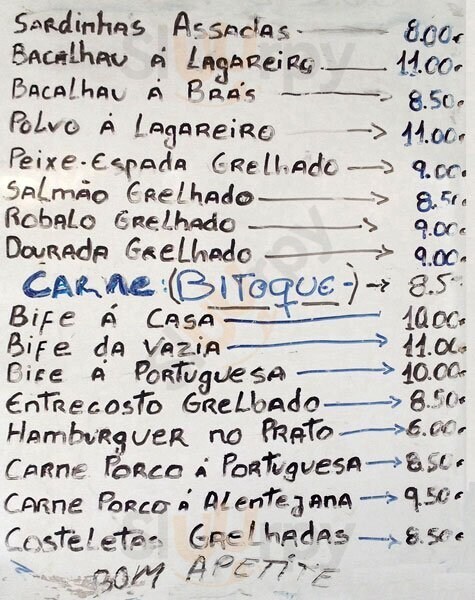 Sardinhas Assadas 8.00€
Bacalhau á Lagareiro 11.00€
Bacalhau á Brás 8.50€
Polvo á Lagareiro 11.00€
Peixe-Espada Grelhado 9.00€
Salmão Grelhado 8.50€
Robalo Grelhado 9.00€
Dourada Grelhado 9.00€
Carne: (Bitoque-) 8.5
Bife á Casa 10.00€
Bife da Vazia 11.00€
Bife á Portuguesa 10.00€
Entrecosto Grelhado 8.50€
Hamburguer no Prato 6.00€
Carne Porco á Portuguesa 8.50€
Carne Porco á Alentejana 9.50€
Costeletas Grelhadas 8.50€
Bom Apetite